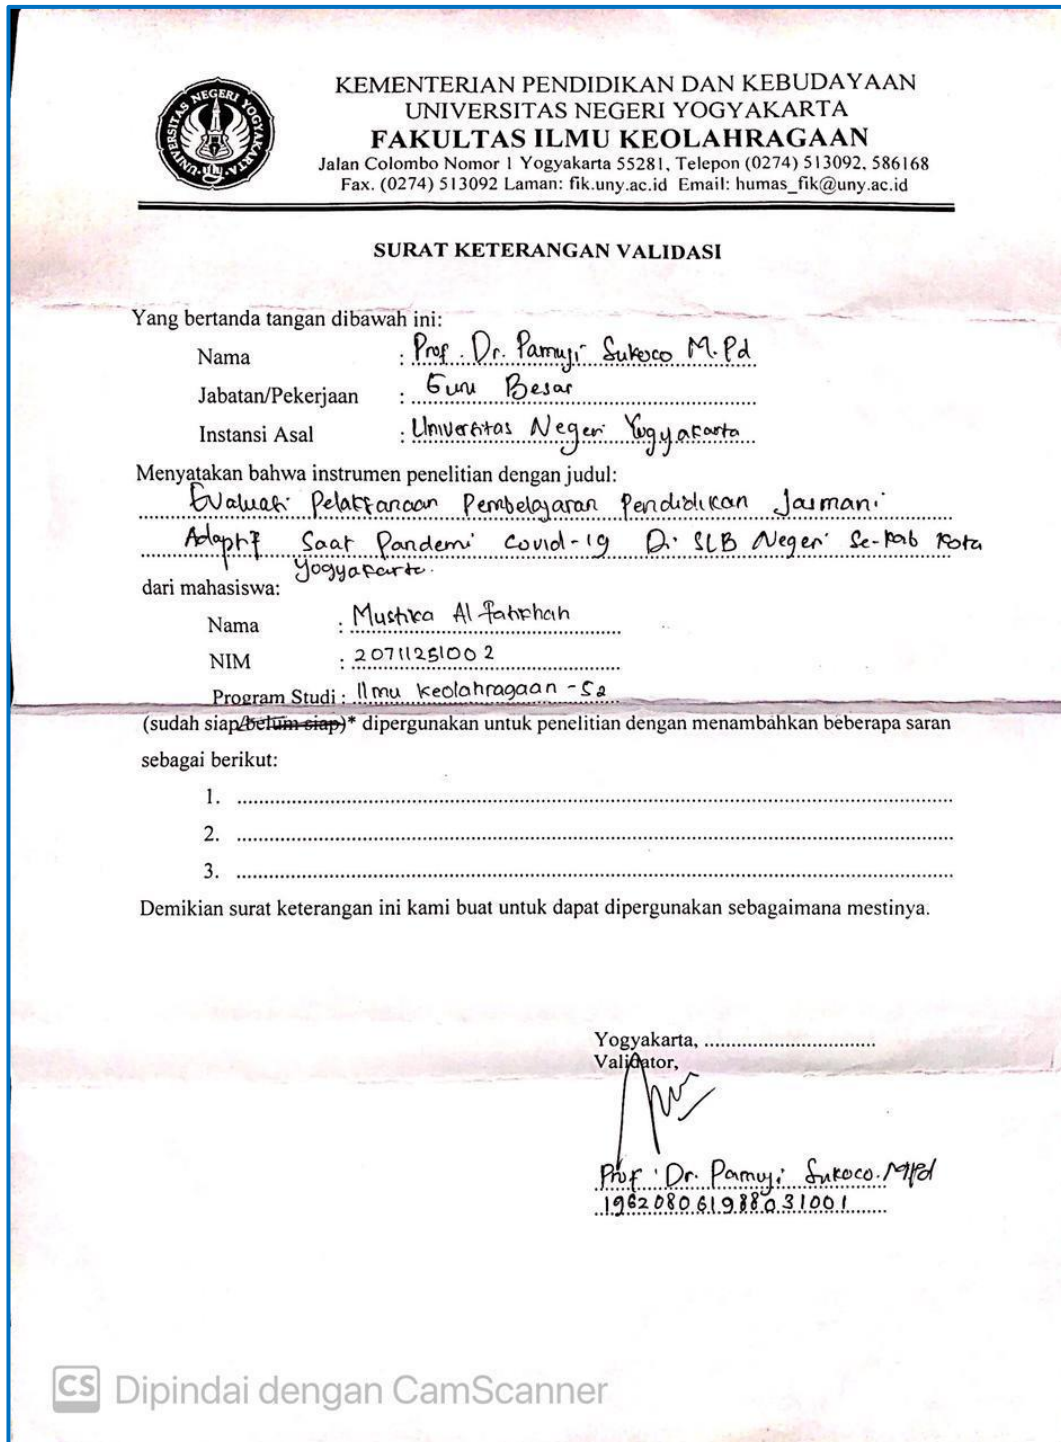 UNIVERSITAS NEGERI YOGYAKARTA
KEMENTERIAN PENDIDIKAN DAN KEBUDAYAAN
UNIVERSITAS NEGERI YOGYAKARTA
FAKULTAS ILMU KEOLAHRAGAAN
Jalan Colombo Nomor 1 Yogyakarta 55281, Telepon (0274) 513092, 586168
Fax. (0274) 513092 Laman: fik.uny.ac.id Email: humas_fik@uny.ac.id
SURAT KETERANGAN VALIDASI
Yang bertanda tangan dibawah ini:
Nama : Prof. Dr. Pamuji Sukoco M.Pd
Jabatan/Pekerjaan : Guru Besar
Instansi Asal : Universitas Negeri Yogyakarta
Menyatakan bahwa instrumen penelitian dengan judul:
Evaluasi Pelaksanaan Pembelajaran Pendidikan Jasmani
Adaptif Saat Pandemi Covid-19 Di SLB Negeri Se-Kab Kota
Yogyakarta.
dari mahasiswa:
Nama : Mustika Al
NIM : 20711251002
Program Studi : Ilmu Keolahragaan - S2
(sudah siap/belum siap)* dipergunakan untuk penelitian dengan menambahkan beberapa saran
sebagai berikut:
1. ....................
2. ....................
3. ....................
Demikian surat keterangan ini kami buat untuk dapat dipergunakan sebagaimana mestinya.
Yogyakarta, ....................
Validator,
Prof. Dr. Pamuji Sukoco. M.Pd
196208061988031001
CS Dipindai dengan CamScanner